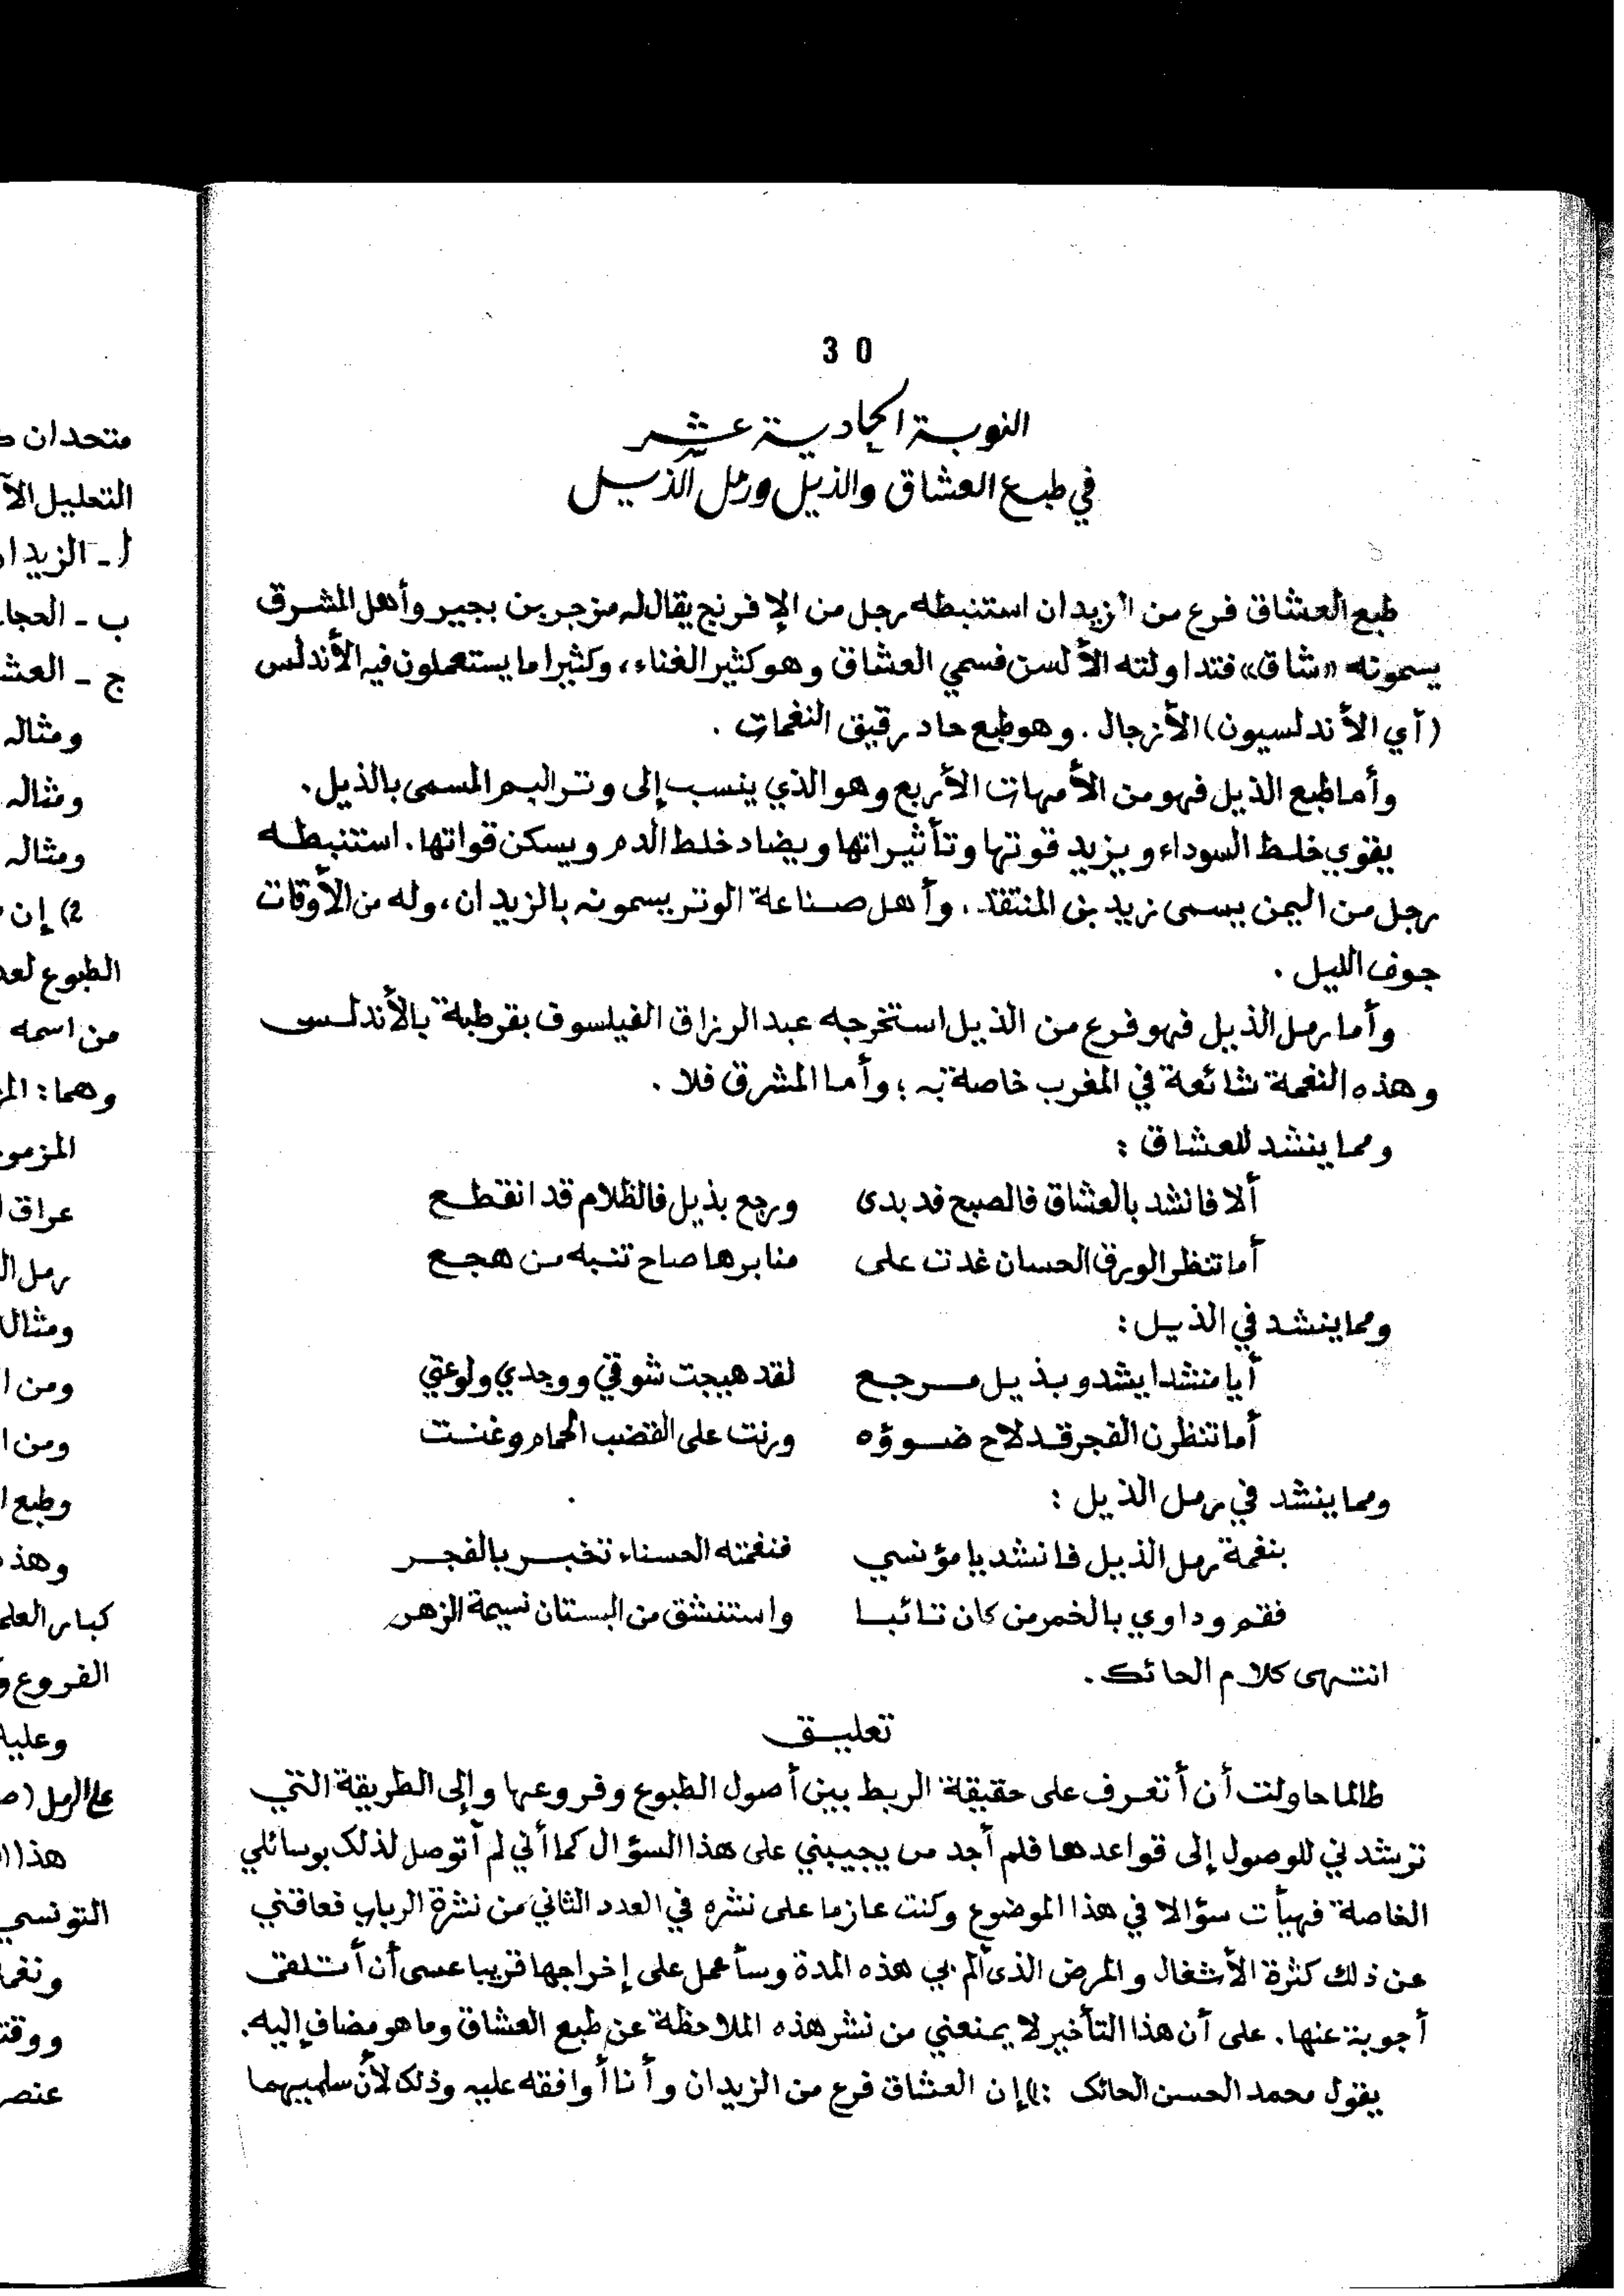 30
النوبة الحادية عشر
في طبع العشاق والذيل ورمل الذيل
طبع العشاق فرع من الزيدان استنبطه رجل من الإفرنج يقال له مزجر بن بجير وأهل المشرق
يسمونه «شاق» فتداولته الألسن فسمي العشاق وهو كثير الغناء، وكثيرا ما يستعملون فيه الأندلس
(أي الأندلسيون) الأزجال. وهو طبع حاد رقيق النغمات.
وأما طبع الذيل فهو من الأمهات الأربع وهو الذي ينسب إلى وتر البم المسمى بالذيل.
يقوي خلط السوداء ويزيد قوتها وتأثيراتها ويضاد خلط الدم ويسكن قواتها. استنبطه
رجل من اليمن يسمى زيد بن المنتقد. وأهل صناعة الوتر يسمونه بالزيدان، وله من الأوقات
جوف الليل.
وأما رمل الذيل فهو فرع من الذيل استخرجه عبد الرزاق الفيلسوف بقرطبة بالأندلس
وهذه النغمة شائعة في المغرب خاصة به؛ وأما المشرق فلا.
ومما ينشد للعشاق:
ألا فانشد بالعشاق فالصبح قد بدى ورجع بذيل فالظلام قد انقطع
أما تنظر الورق الحسان غدت على منابرها صاح تنبه من هجع
ومما ينشد في الذيل:
أيا منشدا يشدو بذيل مرجع لقد هيجت شوقي ووجدي ولوعتي
أما تنظرن الفجر قد لاح ضوؤه ورنت على القضب الحمام وغنت
ومما ينشد في رمل الذيل:
بنغمة رمل الذيل فانشد يا مؤنسي فنغمته الحسناء تخبر بالفجر
فقم وداوي بالخمر من كان تائبا واستنشق من البستان نسيمة الزهر
انتهى كلام الحائك.
تعليق
طالما حاولت أن أتعرف على حقيقة الربط بين أصول الطبوع وفروعها وإلى الطريقة التي
ترشدني للوصول إلى قواعدها فلم أجد من يجيبني على هذا السؤال كما أني لم أتوصل لذلك بوسائلي
الخاصة فهيأت سؤالا في هذا الموضوع وكنت عازما على نشره في العدد الثاني من نشرة الرباب فعاقني
عن ذلك كثرة الأشغال والمرض الذي ألم بي هذه المدة وسأعمل على إخراجها قريبا عسى أن أتلقى
أجوبة عنها. على أن هذا التأخير لا يمنعني من نشر هذه الملاحظة عن طبع العشاق وما هو مضاف إليه.
يقول محمد الحسن الحائك: 1) إن العشاق فرع من الزيدان وأنا أوافقه عليه وذلك لأن سلميهما
متحدان
التحليل
أ - الزيدا
ب - الحجا
ج - العش
ومثاله
ومثاله
ومثاله
2) إن
الطبوع لعد
من اسمه
وهما: المز
المزمو
عراق
رمل ال
ومثال
ومن
ومن
وطبع
وهذ
كبار العلم
الفروع
وعليه
على الرمل (ص
هذا
التونسي
ونغم
ووقت
عنصر